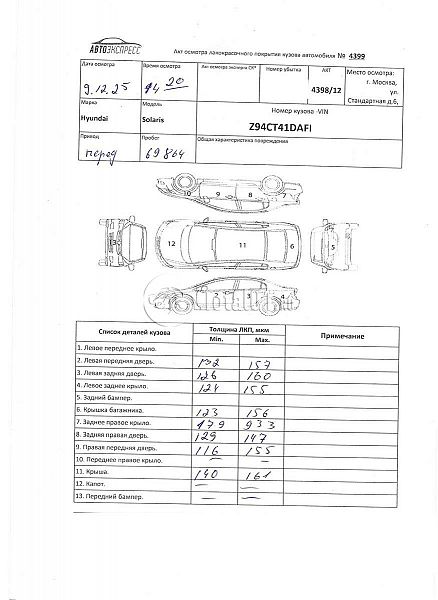 АВТОЭКСПРЕСС
Акт осмотра лакокрасочного покрытия кузова автомобиля № 4399
Дата осмотра Время осмотра Акт осмотра эксперта СК* Номер убытка АКТ Место осмотра:
9.12.25 14 20 4398/12 г. Москва,
ул.
Стандартная д.6,
Марка Модель Номер кузова -VIN
Hyundai Solaris Z94CT41DAFI
Привод Пробег Общая характеристика повреждения
перед 69864
10 9 8 7
13 12 11 6 5
1 2 3 4
Список деталей кузова Толщина ЛКП, мкм Примечание
Min. Max.
1. Левое переднее крыло.
2. Левая передняя дверь. 132 157
3. Левая задняя дверь. 126 160
4. Левое заднее крыло. 124 155
5. Задний бампер.
6. Крышка багажника. 123 156
7. Заднее правое крыло. 179 933
8. Задняя правая дверь. 129 147
9. Правая передняя дверь. 116 155
10. Переднее правое крыло.
11. Крыша. 140 161
12. Капот. — —
13. Передний бампер. — —